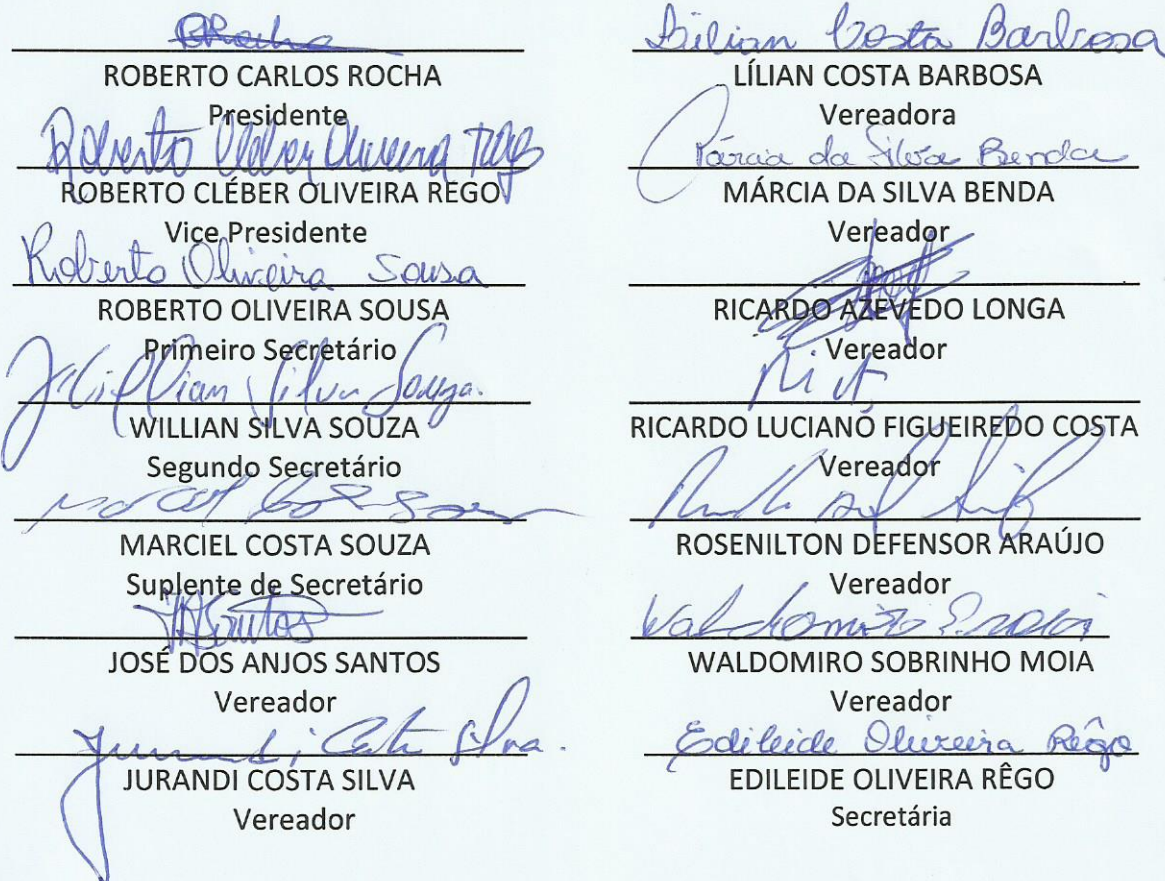 ROBERTO CARLOS ROCHA
Presidente
Roberto Cleber Oliveira Rêgo
ROBERTO CLÉBER OLIVEIRA REGO
Vice Presidente
Roberto Oliveira Sousa
ROBERTO OLIVEIRA SOUSA
Primeiro Secretário
Willian Silva Souza.
WILLIAN SILVA SOUZA
Segundo Secretário
MARCIEL COSTA SOUZA
Suplente de Secretário
JOSÉ DOS ANJOS SANTOS
Vereador
Jurandi Costa Silva.
JURANDI COSTA SILVA
Vereador
Lilian Costa Barbosa
LÍLIAN COSTA BARBOSA
Vereadora
Márcia da Silva Benda
MÁRCIA DA SILVA BENDA
Vereador
RICARDO AZEVEDO LONGA
Vereador
RICARDO LUCIANO FIGUEIREDO COSTA
Vereador
ROSENILTON DEFENSOR ARAÚJO
Vereador
Waldomiro
WALDOMIRO SOBRINHO MOIA
Vereador
Edileide Oliveira Rêgo
EDILEIDE OLIVEIRA RÊGO
Secretária